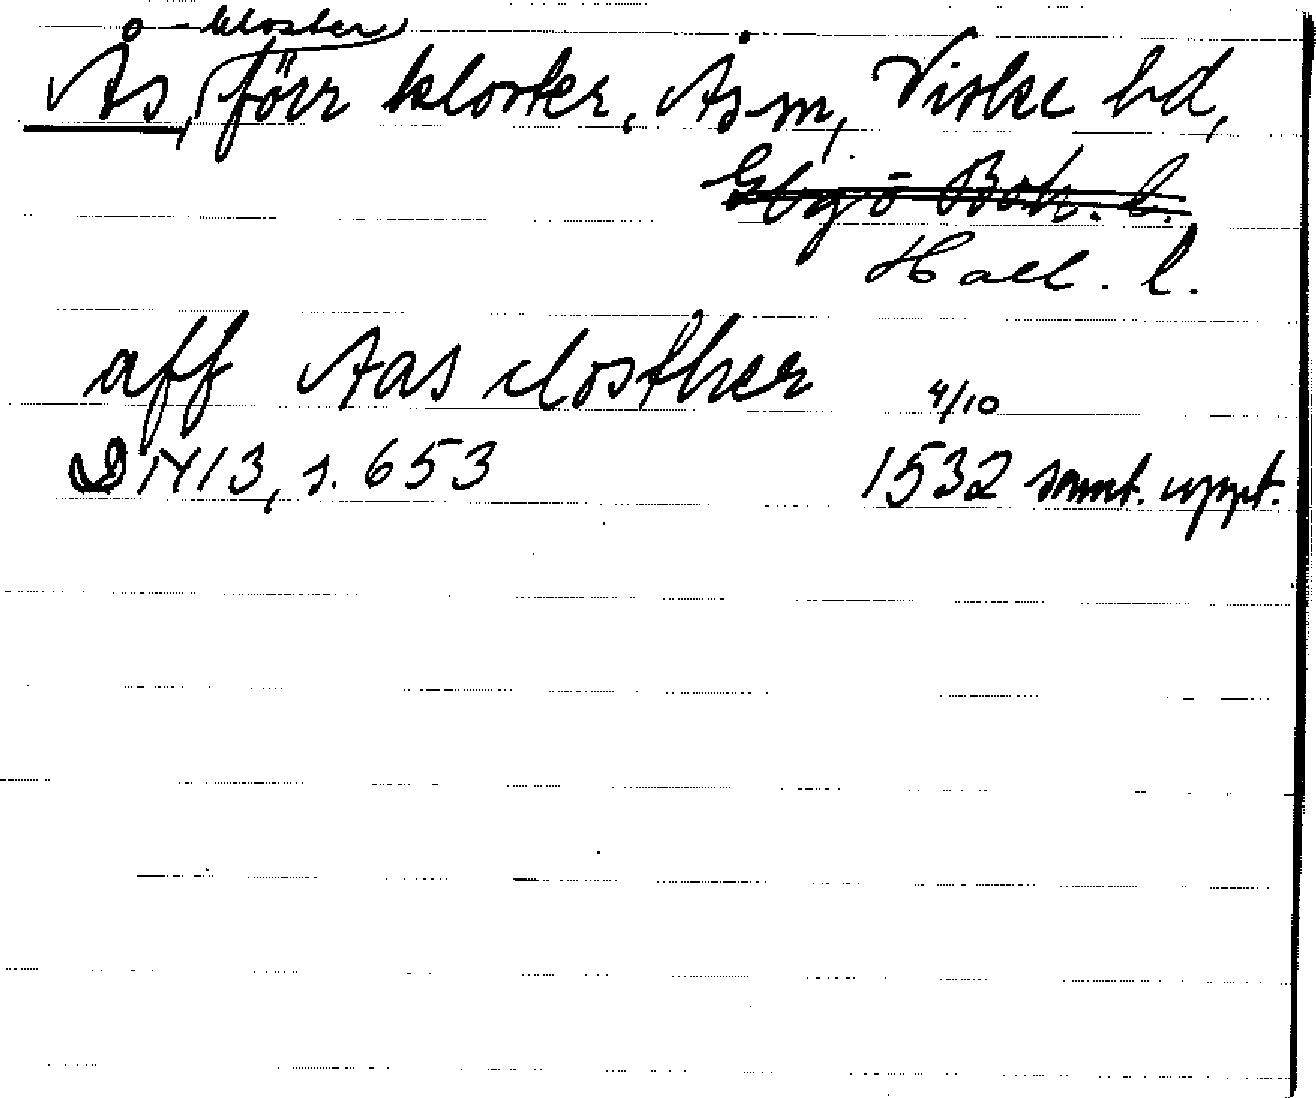 -kloster
Ås, förr kloster, Ås sn, Viske hd,
Elgö Boh. l.
Hall. l.
aff Aas closther
4/10
D 1413, s. 653 1532 samt. uppt.